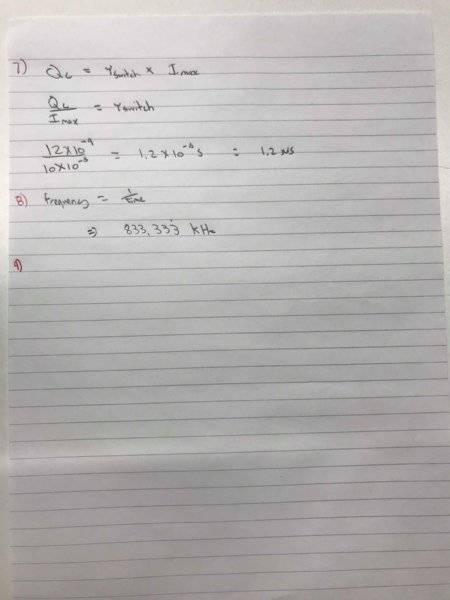 7) QL = Tswitch × Imax
QL / Imax = Tswitch
12×10⁻⁹ / 10×10⁻³ = 1.2×10⁻⁶ s = 1.2 μs
8) Frequency = 1 / time
⇒ 833.333̇ kHz
9)